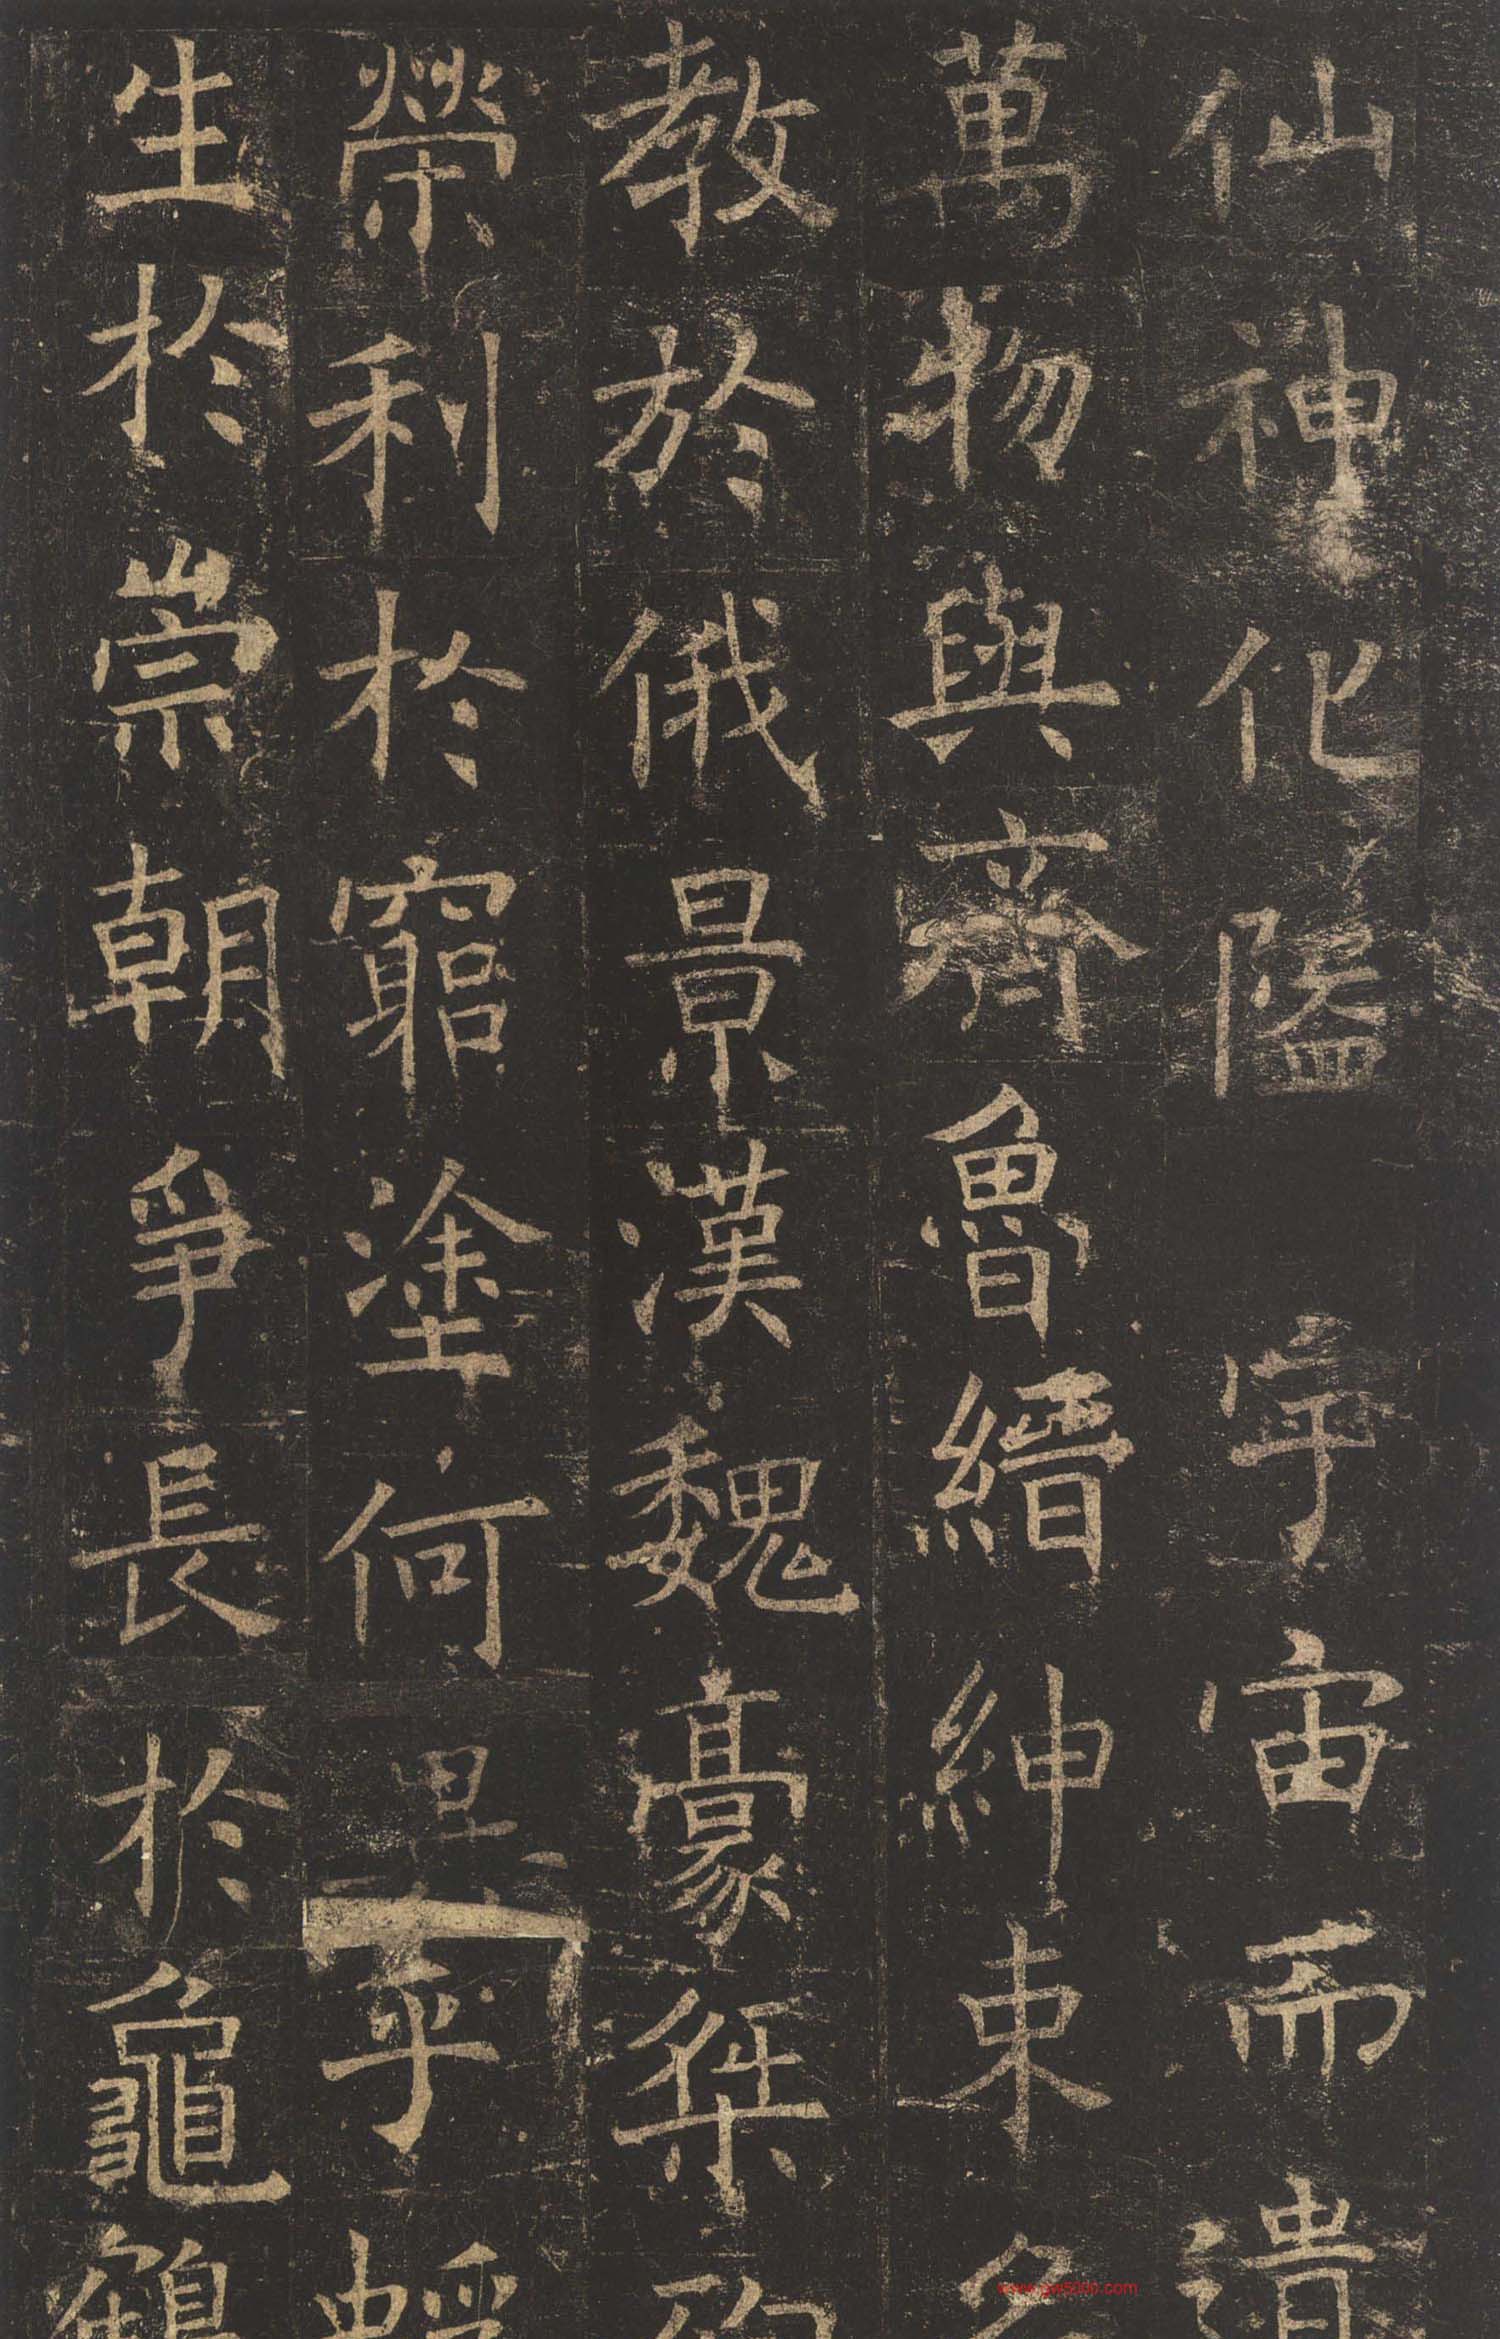 仙神化隘宇宙而遺
萬物與齊魯縉紳束名
教於俄景漢魏豪桀
榮利於窮塗何異乎蜉
生於崇朝爭長於龜鶴
www.gw500n.com